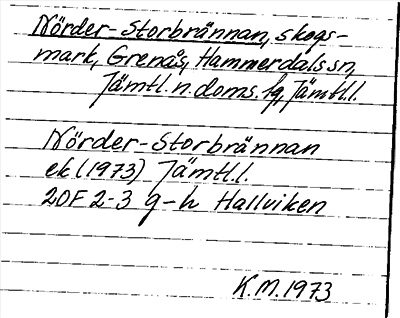 Nörder-Storbrännan, skogs-
mark, Grenås, Hammerdals sn,
Jämtl. n. doms. fg, Jämtl.l.
Nörder-Storbrännan
ek (1973) Jämtl.l.
20F 2-3 g-h Hallviken
K.M. 1973